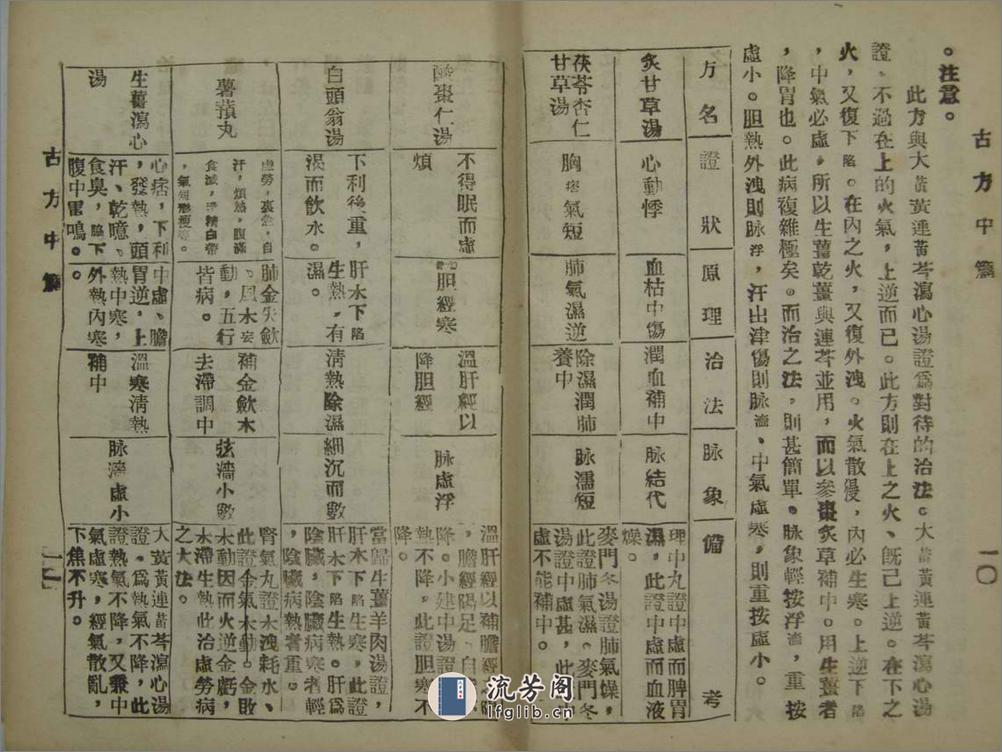 古方中篇
一〇
。注意。
此方與大黃黃連黃芩瀉心湯證爲對待的治法。大黃黃連黃芩瀉心湯
證，不過在上的火氣，上逆而已。此方則在上之火、旣已上逆。在下之
火，又復下陷。在內之火，又復外洩。火氣散僈，內必生寒。上逆下陷
，中氣必虛，所以生薑乾薑與連芩並用，而以參棗炙草補中。用生薑者
，降胃也。此病復雜極矣。而治之法，則甚簡單。脉象輕按浮濇，重按
虛小。胆熱外洩則脉浮，汗出津傷則脉濇、中氣虛寒，則重按虛小。
方名
證狀
原理
治法
脉象
備考
炙甘草湯
心動悸
血枯中傷
潤血補中
脉結代
理中丸證中虛而脾胃
濕，此證中虛而血液
燥。
茯苓杏仁
甘草湯
胸痞氣短
肺氣濕逆
除濕潤肺
養中
脉濡短
麥門冬湯證肺氣燥，
此證肺氣濕。麥門冬
湯證中虛甚，此
虛不能補中。
酸棗仁湯
不得眠而虛
煩
胆經寒
溫肝經以
降胆經
脉虛浮
溫肝經以補膽經
，膽經陽足，自
降。小建中湯證
熱不降，此證胆寒不
降。
白頭翁湯
下利後重，
渴而飲水。
肝木下陷
生熱，有
濕。
淸熱除濕
細沉而數
當歸生薑羊肉湯證，
肝木下陷生寒，此證
肝木下陷生熱。肝爲
陰臟，陰臟病寒者輕
，陰臟病熱者重。
薯蕷丸
虛勞，裏急，自
汗，煩熱，腹滿
食減，遺精白帶
，氣短形瘦等。
肺金失歛
，風木妄
動，五行
皆病。
補金歛木
去滯調中
弦濇小數
腎氣丸證木洩耗水、
此證金氣木動。金敗
木動因而火逆金虧，
木滯生熱此治虛勞病
之大法。
生薑瀉心
湯
心痞，下利
，發熱，頭
汗、乾噫。
食臭，脇下
腹中雷鳴。
中虛、膽
胃逆，上
熱中寒，
外熱內寒
。
溫寒淸熱
補中
脉濇虛小
大黃黃連黃芩瀉心湯
證。爲熱氣不降，此
證熱氣不降，又兼中
氣虛寒，經氣散亂，
下焦不升。
古方中篇
一一
流芳阁
lfglib.cn